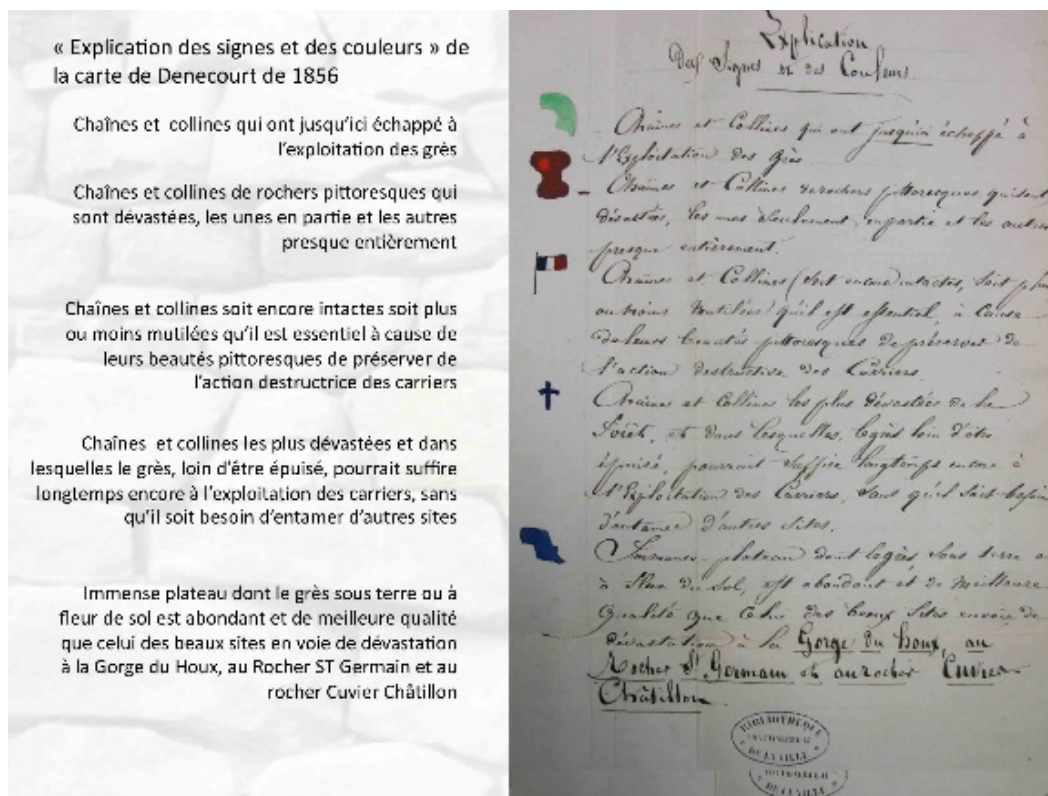 « Explication des signes et des couleurs » de
la carte de Denecourt de 1856
Chaînes et collines qui ont jusqu'ici échappé à
l'exploitation des grès
Chaînes et collines de rochers pittoresques qui
sont dévastées, les unes en partie et les autres
presque entièrement
Chaînes et collines soit encore intactes soit plus
ou moins mutilées qu'il est essentiel à cause de
leurs beautés pittoresques de préserver de
l'action destructrice des carriers
Chaînes et collines les plus dévastées et dans
lesquelles le grès, loin d'être épuisé, pourrait suffire
longtemps encore à l'exploitation des carriers, sans
qu'il soit besoin d'entamer d'autres sites
Immense plateau dont le grès sous terre ou à
fleur de sol est abondant et de meilleure qualité
que celui des beaux sites en voie de dévastation
à la Gorge du Houx, au Rocher ST Germain et au
rocher Cuvier Châtillon
Explication
Des Signes et des Couleurs.
Chaînes et Collines qui ont jusqu'ici échappé à
l'Exploitation des Grès
Chaînes et Collines de rochers pittoresques qui sont
dévastées, les unes seulement en partie et les autres
presque entièrement.
Chaînes et Collines (soit encore intactes, soit plus
ou moins mutilées) qu'il est essentiel, à cause
de leurs beautés pittoresques de préserver de
l'action destructive des Carriers
Chaînes et Collines les plus dévastées de la
Forêt, et dans lesquelles, le grès loin d'être
épuisé, pourrait suffire longtemps encore à
l'Exploitation des Carriers, sans qu'il soit besoin
d'entamer d'autres Sites.
Immense plateau dont le grès sous terre ou
à fleur du Sol, est abondant et de meilleure
qualité que celui des beaux sites en voie de
dévastation à la Gorge du Houx, au
Rocher St Germain et au rocher Cuvier
Châtillon
BIBLIOTHEQUE
DE LA VILLE